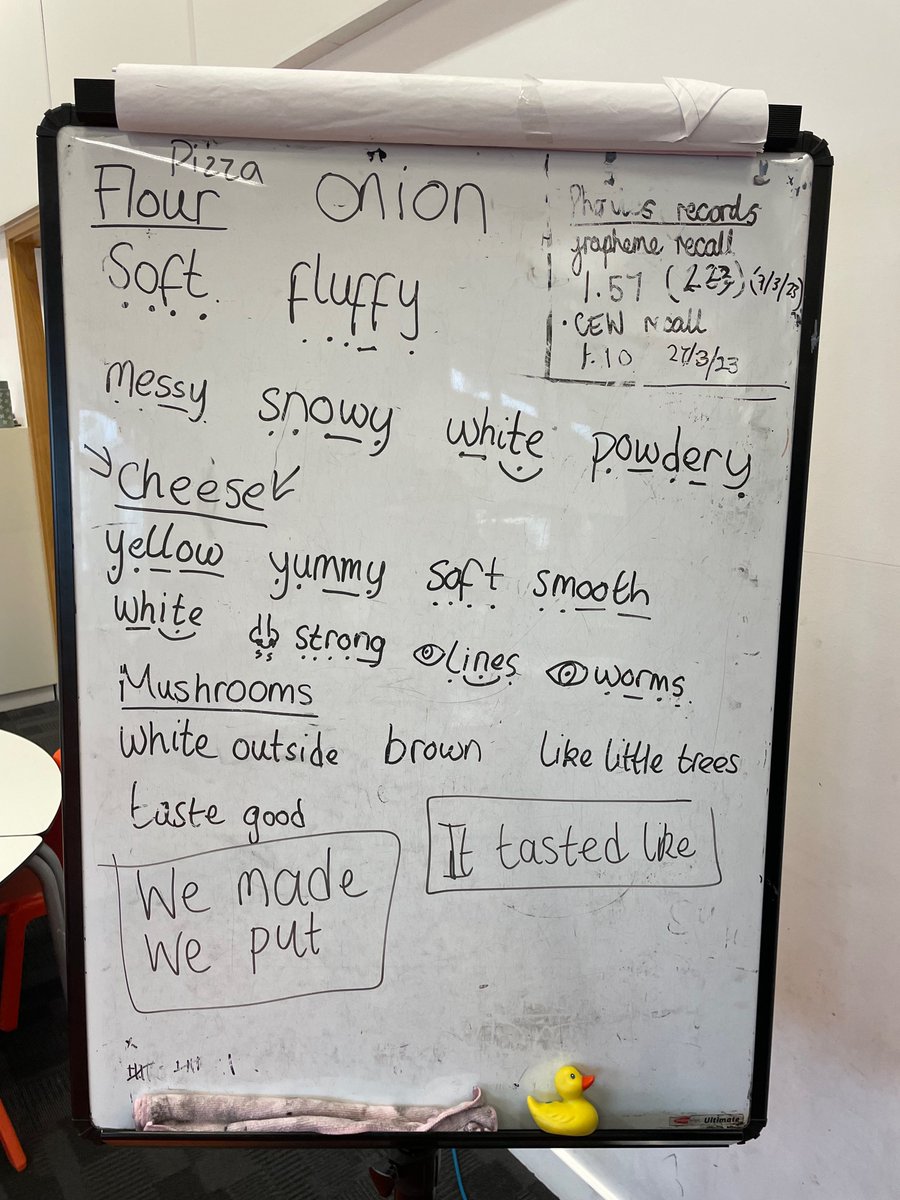 Pizza
Flour onion
Soft fluffy
messy snowy white powdery
Cheese
yellow yummy soft smooth
white strong lines worms
Mushrooms
white outside brown like little trees
taste good
We made
We put
It tasted like
Phonics records
grapheme recall
1.57
CEW recall
1.10 27/3/23
Ultimate